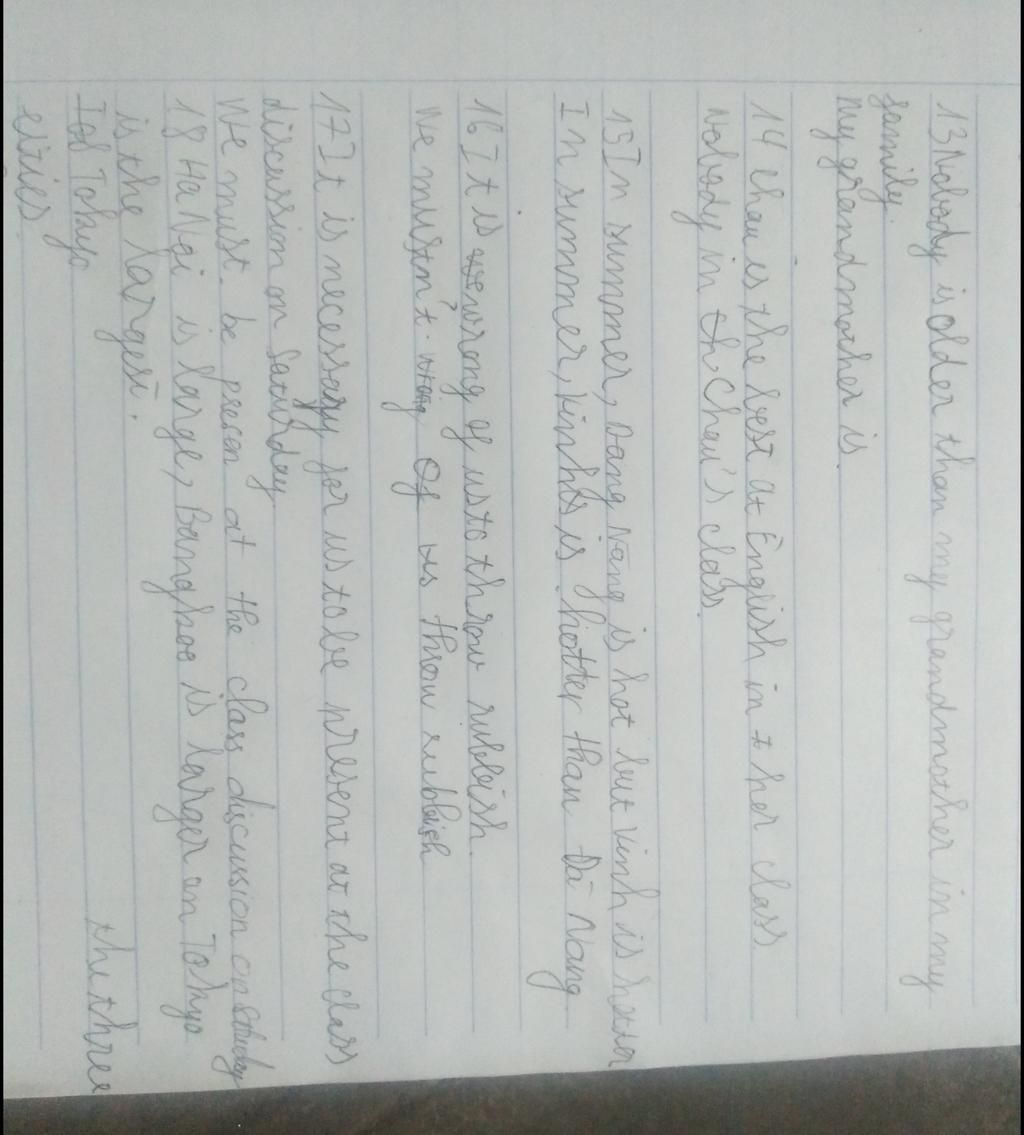 13 Nobody is older than my grandmother in my
family.
My grandmother is
14 Chau is the best at English in t her class
Nobody in th Chau's class
15 In summer, Dang Nang is hot but Vinh is hotter
In summer, Vinh is hotter than Đà Nang
16 It is wrong of us to throw rubbish.
We mustn't of us throw rubbish
17 It is necessary for us to be present at the class
discussion on Saturday
We must be presen at the class discussion on
18 Ha Noi is large, Bangkoo is larger an Tokyo
is the largest.
Tokyo the three
cities.